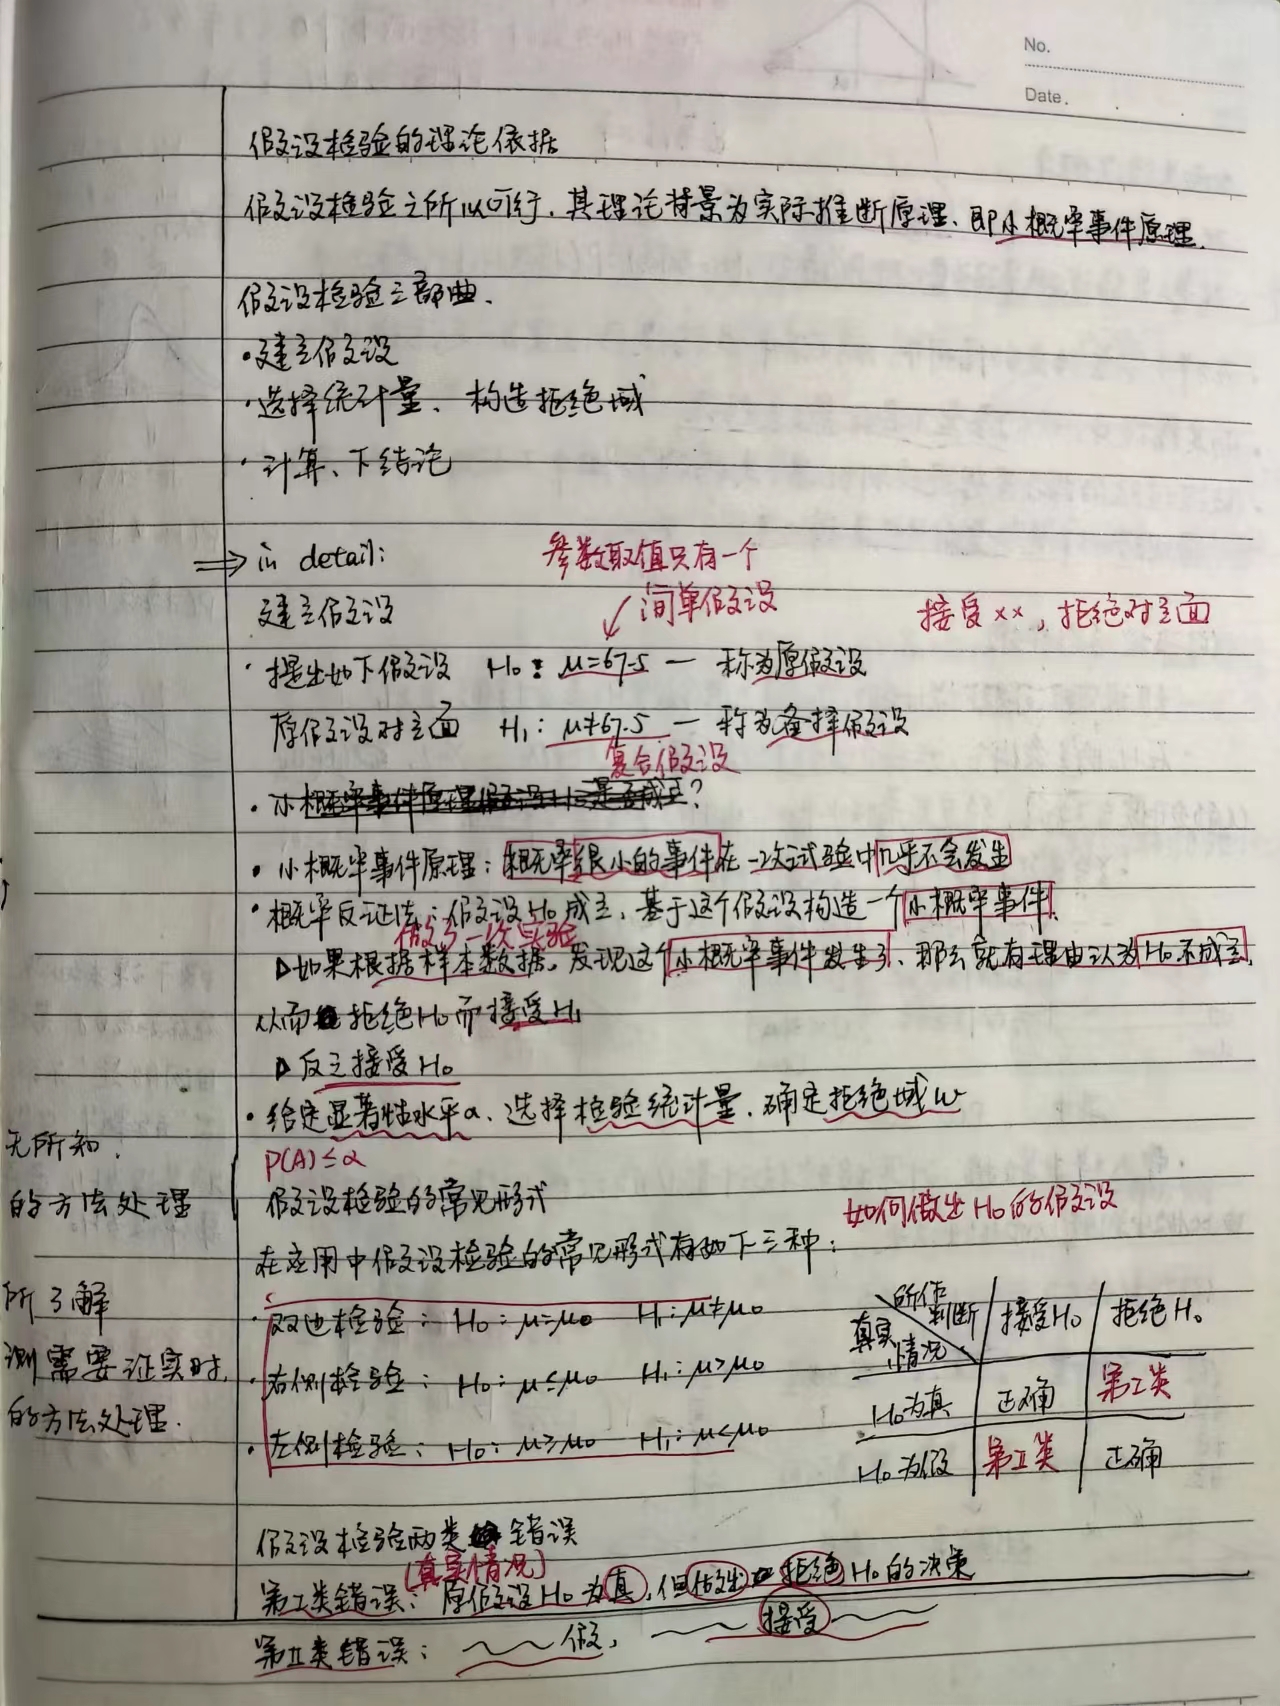 No.
Date.
假设检验的理论依据
假设检验之所以可行，其理论背景为实际推断原理、即小概率事件原理.
假设检验三部曲.
·建立假设
·选择统计量、构造拒绝域
·计算、下结论
⇒ in detail:
参数取值只有一个
建立假设 ↙简单假设 接受××，拒绝对立面
·提出如下假设 H₀: μ=67.5 — 称为原假设
原假设对立面 H₁: μ≠67.5 — 称为备择假设
复合假设
·小概率事件原理假设H₀是否成立?
·小概率事件原理：概率很小的事件在一次试验中几乎不会发生
·概率反证法：假设H₀成立，基于这个假设构造一个小概率事件.
做了一次实验
▷如果根据样本数据，发现这个小概率事件发生了、那么就有理由认为H₀不成立,
从而拒绝H₀而接受H₁
▷反之接受H₀
·给定显著性水平α、选择检验统计量、确定拒绝域W
P(A)≤α
无所知.
的方法处理
所了解
测需要证实时,
的方法处理.
假设检验的常见形式
如何做出H₀的假设
在应用中假设检验的常见形式有如下三种：
·双边检验：H₀: μ=μ₀ H₁: μ≠μ₀
·右侧检验：H₀: μ≤μ₀ H₁: μ>μ₀
·左侧检验：H₀: μ≥μ₀ H₁: μ<μ₀
所作判断 真实情况 接受H₀ 拒绝H₀
H₀为真 正确 第I类
H₀为假 第II类 正确
假设检验两类错误
(真实情况)
第I类错误：原假设H₀为真，但做出拒绝H₀的决策
第II类错误：~~假，~~接受~~